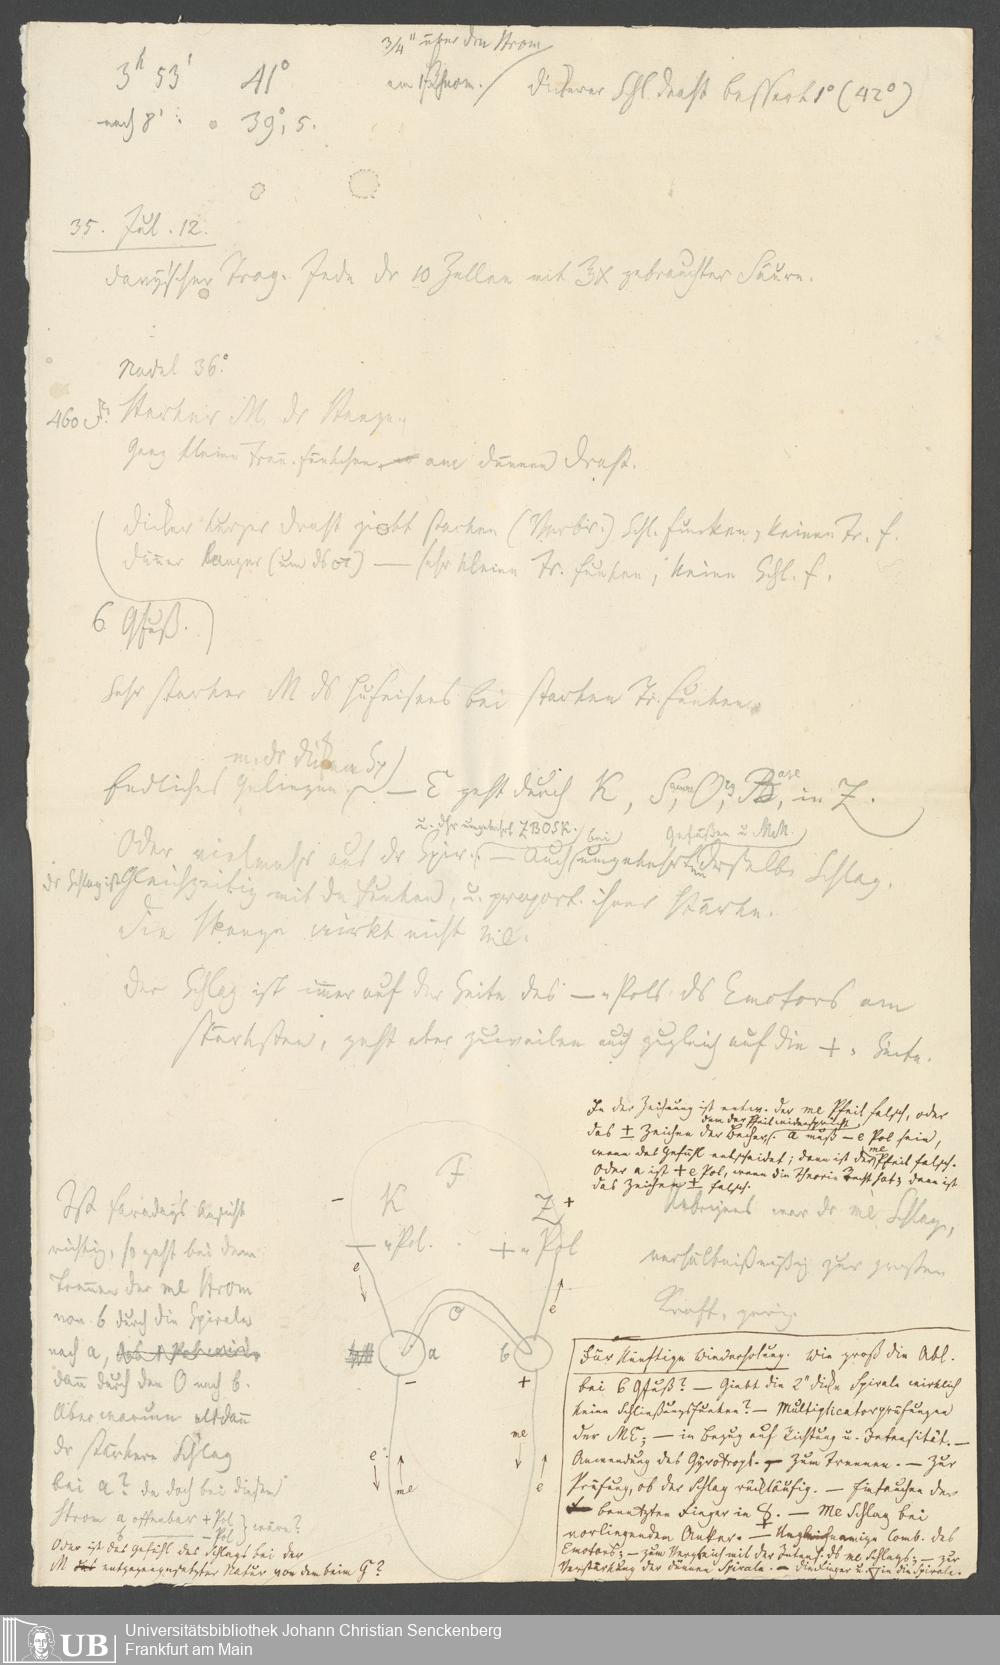 3/4" über den Strom
3h 53' 41°
am Chrom. dickerer Schl. Draht bessert 1° (42°)
nach 8' : 39°,5.
35. Jul. 12.
Jede dr 10 Zellen mit gebrauchter Säure.
Nadel 36°.
460
Starker M. dr Stange.
Ganz kleine Trenn. Fünkchen am dünnen Draht.
Dicker kurzer Draht giebt starken Schl. Funken, keinen Tr. f.
Dünner langer — sehr kleine Tr. Funken, keine Schl. f.
6 QFuß.
Sehr starker M ds Hufeisens bei starken Tr. Funken.
m. dr dicken Sp
Endliches Gelingen. — E geht durch K, in Z.
u. dhr umgekehrt ZBOSK. bei
Oder vielmehr aus dr Spir. — Auch umgekehrt derselbe Schlag.
dr Schlag ist Gleichzeitig mit dn Funken, u. proport. ihrer Stärke.
Die Stange wirkt nicht me.
Der Schlag ist immer auf der Seite des — Pols ds Emotors am
stärksten, geht aber zuweilen auch zugleich auf die + Seite.
In der Zeichnung ist entw. der me Pfeil falsch, oder
dem der Pfeil widerspricht
das ± Zeichen der Becher. a muß — e Pol sein,
wenn das Gefühl entscheidet; dann ist der me Pfeil falsch.
Oder a ist + e Pol, wenn die Theorie Recht hat; dann ist
das Zeichen ± falsch.
Übrigens war dr me Schlag,
verhältnißmäßig zur großen
Kraft, gering.
F
− K Z +
— Pol. + Pol
e
e
a b
− +
e me
me e
Ist Faradays Ansicht
richtig, so geht bei dem
Trennen der me Strom
von b durch die Spirale
nach a,
dann durch den O nach b.
Aber warum alsdann
dr stärkere Schlag
bei a? da doch bei diesem
Strom a offenbar + Pol
— Pol wäre?
Oder ist das Gefühl des Schlags bei der
M entgegengesetzter Natur von dem beim G?
Für künftige Wiederholung. Wie groß die Abl.
bei 6 QFuß? — Giebt die 2" dicke Spirale wirklich
keine Schließungsfunken? — Multiplicatorprüfungen
der ME; — in Bezug auf Richtung u. Intensität. —
Anwendung des Gyrotrops. — Zum Trennen. — Zur
Prüfung, ob der Schlag rückläufig. — Eintauchen der
benetzten Finger in — Me Schlag bei
vorliegendem Anker. — Comb. des
Emotors; — zum Vergleich mit der Intens. ds me Schlags; — zur
Verstärkung der dünnen Spirale. — in die Spirale.
Universitätsbibliothek Johann Christian Senckenberg
Frankfurt am Main
UB